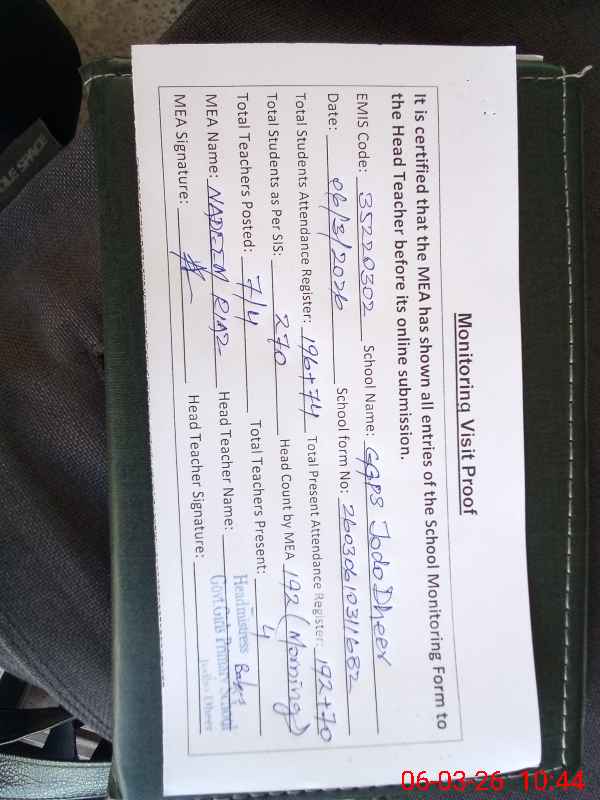 Monitoring Visit Proof
It is certified that the MEA has shown all entries of the School Monitoring Form to
the Head Teacher before its online submission.
EMIS Code: 35220302 School Name: GGPS Jodo Dheer
Date: 06/3/2026 School form No: 26030610311682
Total Students Attendance Register: 196+74 Total Present Attendance Register: 192+70
Total Students as Per SIS: 270 Head Count by MEA 192 (Morning)
Total Teachers Posted: 7/4 Total Teachers Present: 4
MEA Name: NADEEM RIAZ Head Teacher Name:
MEA Signature: Head Teacher Signature:
Headmistress
Govt. Girls Primary School
Dheer
OLE SPACE
06-03-26 10:44